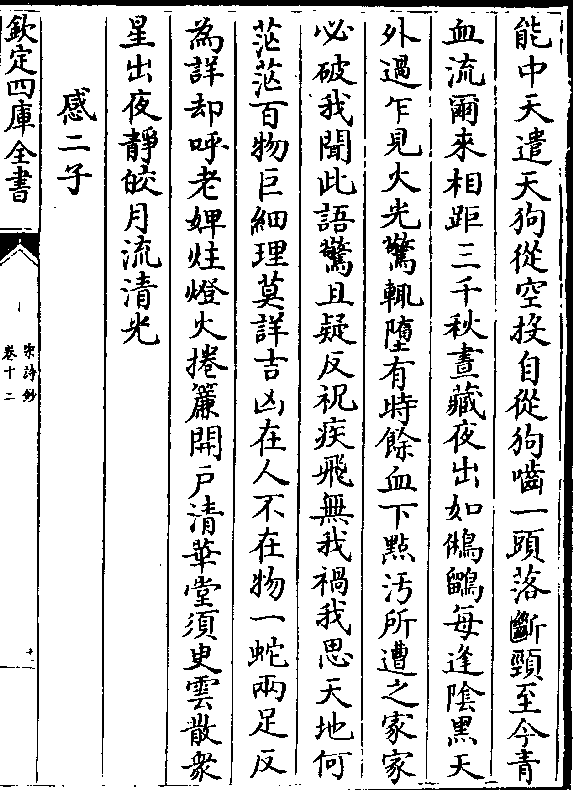 能中天遣天狗從空投自從狗嚙一頭落斷頸至今青
血流爾來相距三千秋晝藏夜出如鵂鶹每逢陰黑天
外過乍見火光驚輒墮有時餘血下點汚所遭之家家
必破我聞此語驚且疑反祝疾飛無我禍我思天地何
茫茫百物巨細理莫詳吉凶在人不在物一蛇兩足反
為詳却呼老婢炷燈火捲簾開戶清華堂須臾雲散衆
星出夜靜皎月流清光
感二子
欽定四庫全書
宋詩鈔
卷十二